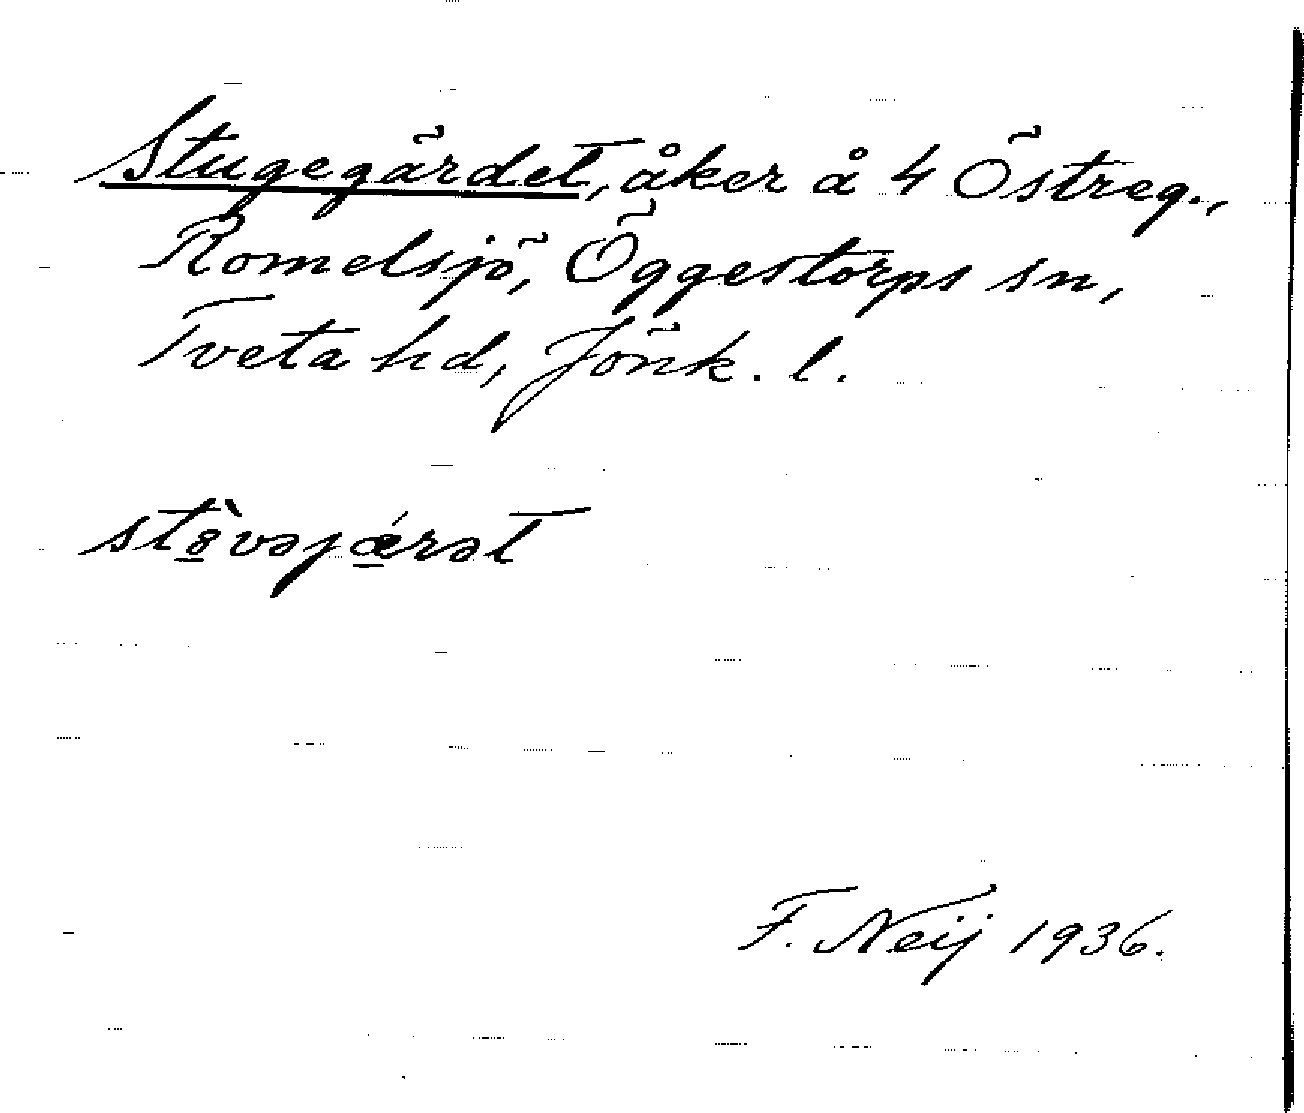 Stugegärdet, åker å 4 Östreg.,
Romelsjö, Öggestorps sn,
Tveta hd, Jönk. l.
stȍvəjǽrət
F. Neij 1936.